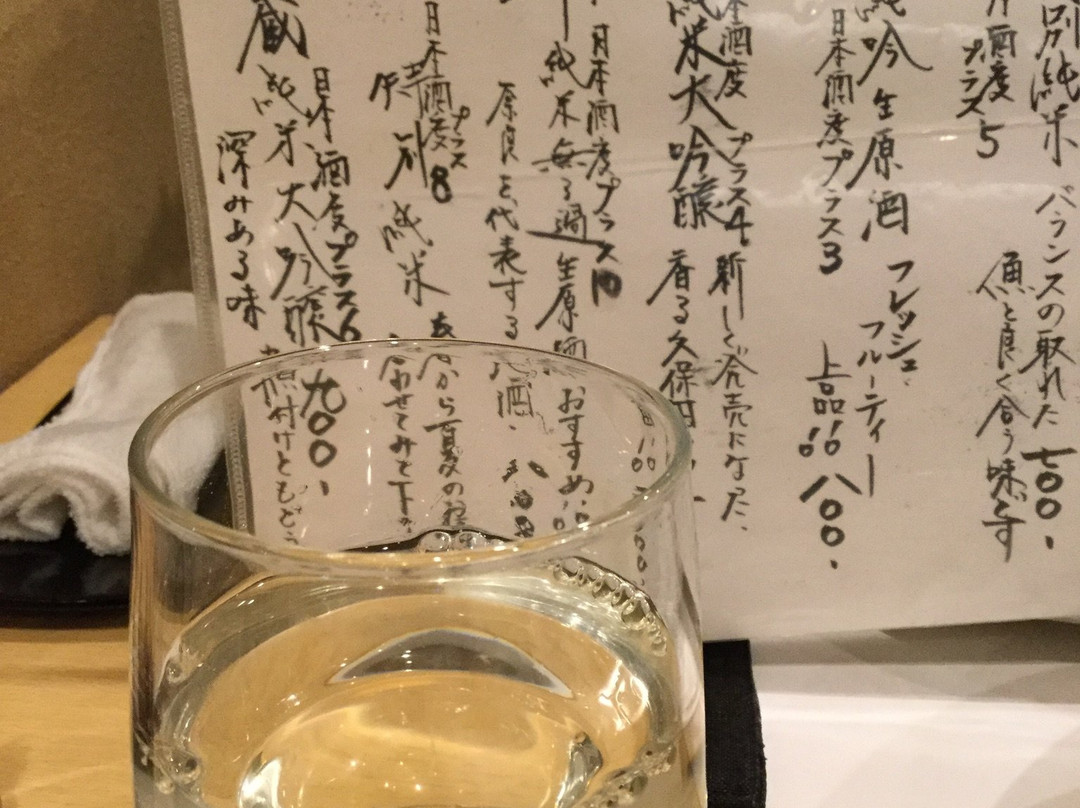 別純米 バランスの取れた 七〇〇、
酒度 プラス5 魚と良く合う味です
純吟 生原酒 フレッシュ、フルーティー
日本酒度プラス3 上品 八〇〇、
本酒度 プラス4、新しく発売になった、
純米大吟醸 香る久保田
日本酒度プラス10 おすすめ
純米無ろ過生原酒
奈良を代表する 地酒、
日本酒度プラス8
特別純米 夏の
わせてみて下
日本酒度プラス6 九〇〇、
蔵 純米大吟醸 付けともどう
深みある味